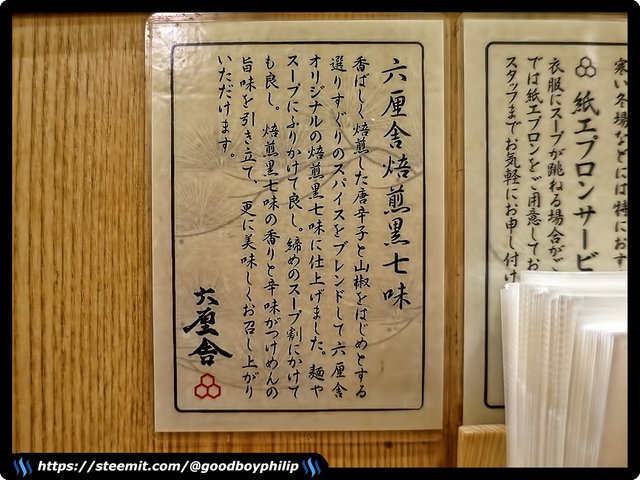 六厘舎焙煎黒七味
香ばしく焙煎した唐辛子と山椒をはじめとする
選りすぐりのスパイスをブレンドして六厘舎
オリジナルの焙煎黒七味に仕上げました。麺や
スープにふりかけて良し。締めのスープ割にかけて
も良し。焙煎黒七味の香りと辛味がつけめんの
旨味を引き立て、更に美味しくお召し上がり
いただけます。
六厘舎
寒い冬場などには特におす
紙エプロンサービ
衣服にスープが跳ねる場合がご
では紙エプロンをご用意してお
スタッフまでお気軽にお申し付け
https://steemit.com/@goodboyphilip